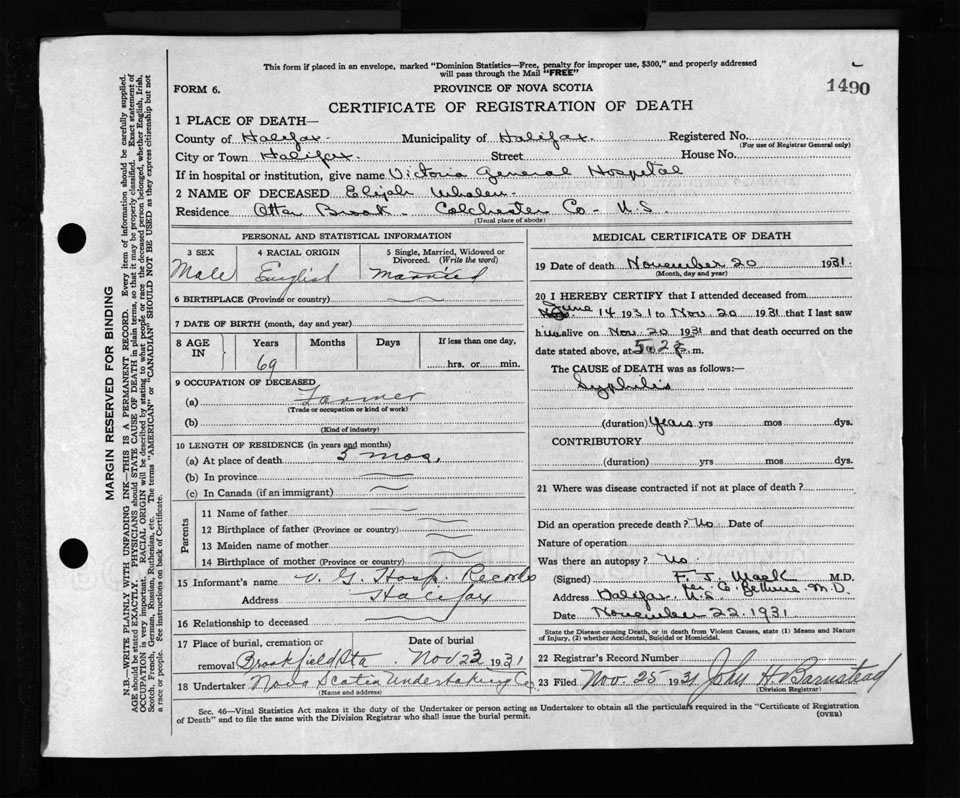 This form if placed in an envelope, marked "Dominion Statistics—Free, penalty for improper use, $300," and properly addressed
will pass through the Mail "FREE"
1490
FORM 6.
PROVINCE OF NOVA SCOTIA
CERTIFICATE OF REGISTRATION OF DEATH
1 PLACE OF DEATH—
County of Halifax. Municipality of Halifax. Registered No.
(For use of Registrar General only)
City or Town Halifax. Street House No.
If in hospital or institution, give name Victoria General Hospital
2 NAME OF DECEASED Elijah Whalen.
Residence Otter Brook. Colchester Co - N.S.
(Usual place of abode)
PERSONAL AND STATISTICAL INFORMATION
3 SEX
Male
4 RACIAL ORIGIN
English
5 Single, Married, Widowed or
Divorced. (Write the word)
Married
6 BIRTHPLACE (Province or country)
7 DATE OF BIRTH (month, day and year)
8 AGE
IN
Years
69
Months
Days
If less than one day,
hrs. or min.
9 OCCUPATION OF DECEASED
(a) Farmer
(Trade or occupation or kind of work)
(b)
(Kind of industry)
10 LENGTH OF RESIDENCE (in years and months)
(a) At place of death 5 mos.
(b) In province
(c) In Canada (if an immigrant)
Parents
11 Name of father
12 Birthplace of father (Province or country)
13 Maiden name of mother
14 Birthplace of mother (Province or country)
15 Informant's name V. G. Hosp. Records
Address Halifax
16 Relationship to deceased
17 Place of burial, cremation or
removal Brookfield Sta.
Date of burial
Nov 23 1931
18 Undertaker Nova Scotia Undertaking Co.
(Name and address)
MEDICAL CERTIFICATE OF DEATH
19 Date of death November 20 1931.
(Month, day and year)
20 I HEREBY CERTIFY that I attended deceased from
June 14 1931 to Nov. 20 1931 that I last saw
him alive on Nov. 20 1931 and that death occurred on
date stated above, at m.
The CAUSE of DEATH was as follows:—
Syphilis
(duration) Years yrs mos dys.
CONTRIBUTORY
(duration) yrs mos dys.
21 Where was disease contracted if not at place of death?
Did an operation precede death? No Date of
Nature of operation
Was there an autopsy? No
(Signed) F. J. Mack M.D.
per C. Bethune M.D.
Address Halifax, N.S.
Date November 22. 1931
State the Disease causing Death, or in death from Violent Causes, state (1) Means and Nature
of Injury, (2) whether Accidental, Suicidal or Homicidal.
22 Registrar's Record Number
23 Filed Nov. 25 1931 John H. Barnstead
(Division Registrar)
Sec. 46—Vital Statistics Act makes it the duty of the Undertaker or person acting as Undertaker to obtain all the particulars required in the "Certificate of Registration
of Death" and to file the same with the Division Registrar who shall issue the burial permit.
(OVER)
MARGIN RESERVED FOR BINDING
N.B.—WRITE PLAINLY WITH UNFADING INK—THIS IS A PERMANENT RECORD. Every item of information should be carefully supplied.
AGE should be stated EXACTLY. PHYSICIANS should STATE CAUSE OF DEATH in plain terms, so that it may be properly classified. Exact statement of
OCCUPATION is very important. RACIAL ORIGIN will be described by stating what people or race the deceased person belonged, whether English, Irish,
Scotch, French, German, Russian, Ruthenian, etc. The terms "AMERICAN" or "CANADIAN" SHOULD NOT BE USED as they express citizenship but not
a race or people. See instructions on back of Certificate.